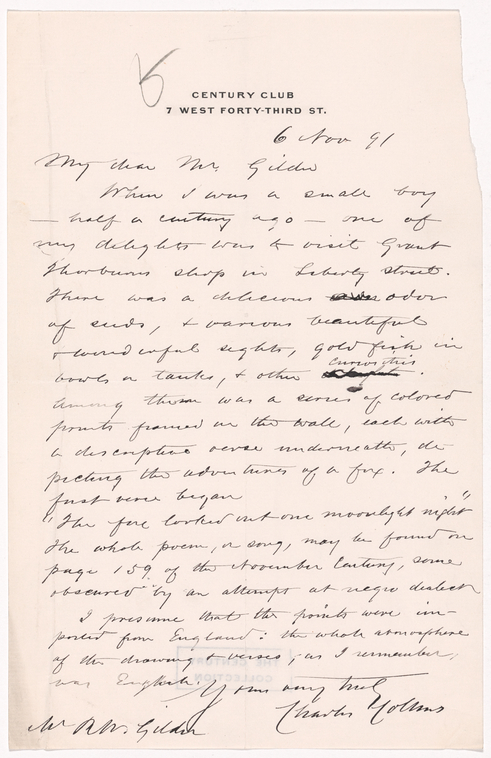 CENTURY CLUB
7 WEST FORTY-THIRD ST.
6 Nov 91
My dear Mr. Gilder
When I was a small boy
— half a century ago — one of
my delights was to visit Grant
Thorburns shop in Liberty street.
There was a delicious odor
of seeds, & various beautiful
& wonderful sights, gold fish in
bowls or tanks, & other curiosities.
Among them was a series of colored
prints framed on the wall, each with
a descriptive verse underneath, de-
picting the adventures of a fox. The
first verse began
"The fox looked out one moonlight night"
The whole poem, or song, may be found on
page 159 of the November Century, some
obscured by an attempt at negro dialect
I presume that the prints were im-
ported from England: the whole atmosphere
of the drawing & verses, as I remember,
was English.
Yours very truly
Charles Collins
Mr R. W. Gilder
THE CENTURY
COLLECTION